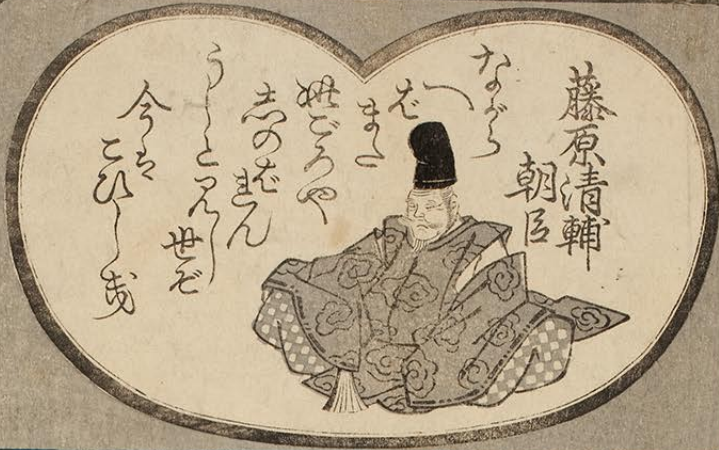 藤原清輔
朝臣
ながら
へ
ばま
た
此ごろや
志のばれん
うしと見し
世ぞ
今は
こひしき